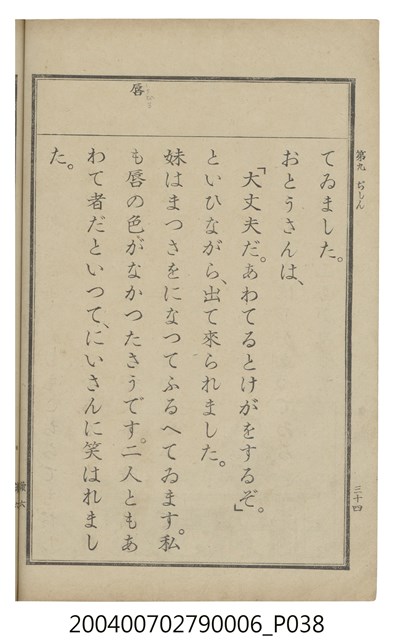 第九 ぢしん
三十四
唇
てゐました。
おとうさんは、
「大丈夫だ。あわてるとけがをするぞ。」
といひながら、出て來られました。
妹はまつさをになつてふるへてゐます。私
も唇の色がなかつたさうです。二人ともあ
わて者だといつて、にいさんに笑はれまし
た。
200400702790006_P038